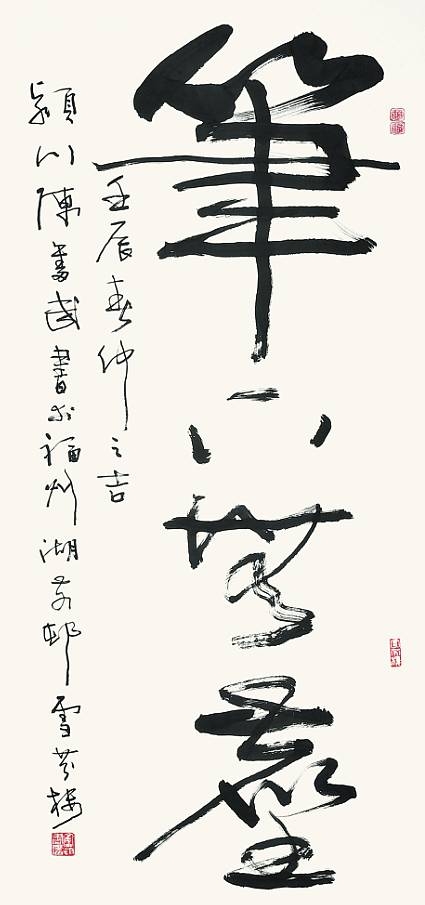 筆下無塵
壬辰春仲之吉
潁川陳奮武書於福州湖前邨雪芬樓